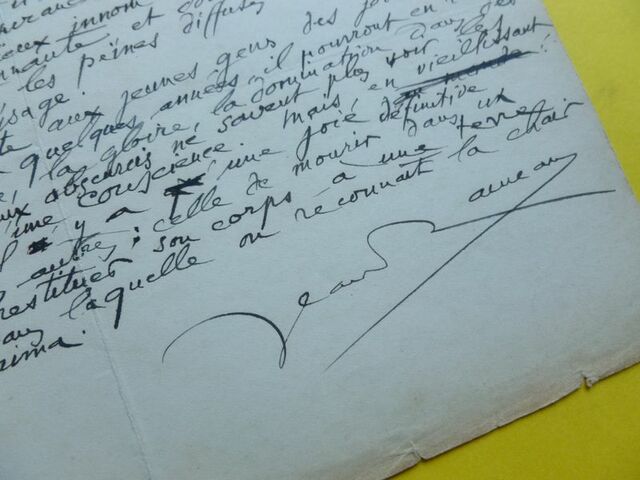 eux innom
nnante et
les peines diffuses
sage.
te aux jeunes gens des jou
quelques années, il pourront en
la gloire, la domination dans des
ux obscurcis ne savent plus voir les
'une conscience. Mais, en vieillissant
l y a une joie définitive
autres ; celle de mourir dans un
restituer son corps à une terre
laquelle on reconnait la chair
rima.
Jean